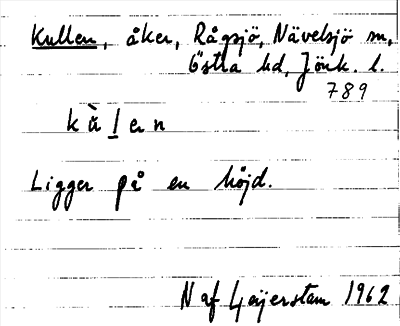 Kullen, åker, Rågsjö, Nävelsjö sn,
Östra hd, Jönk. l.
789
kù l en
Ligger på en höjd.
N af Geijerstam 1962